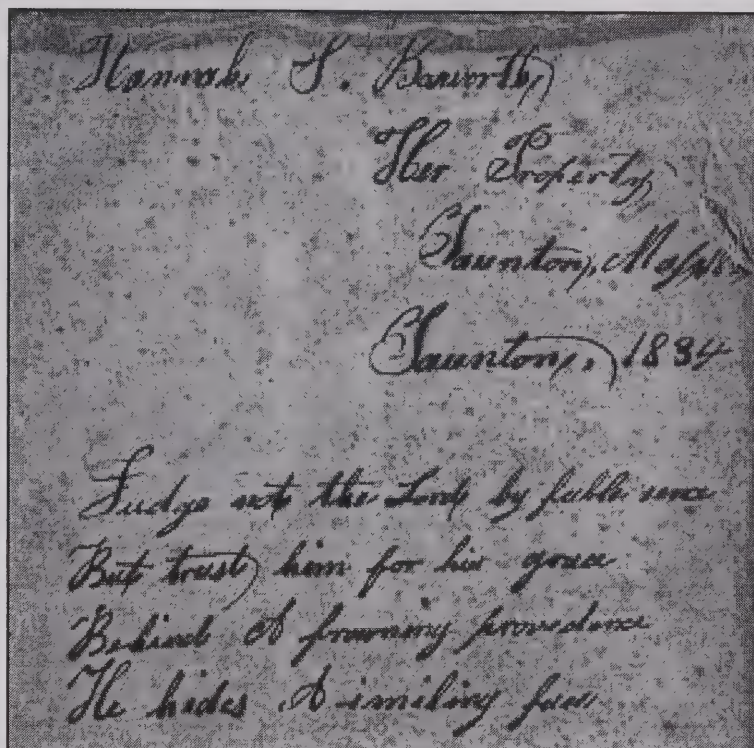 Hannah S. Bosworth
Her Property
Taunton, Mass
Taunton, 1834
Judge not the Lord by feble sence
But trust him for his grace
Behind A frowning providence
He hides A smiling face